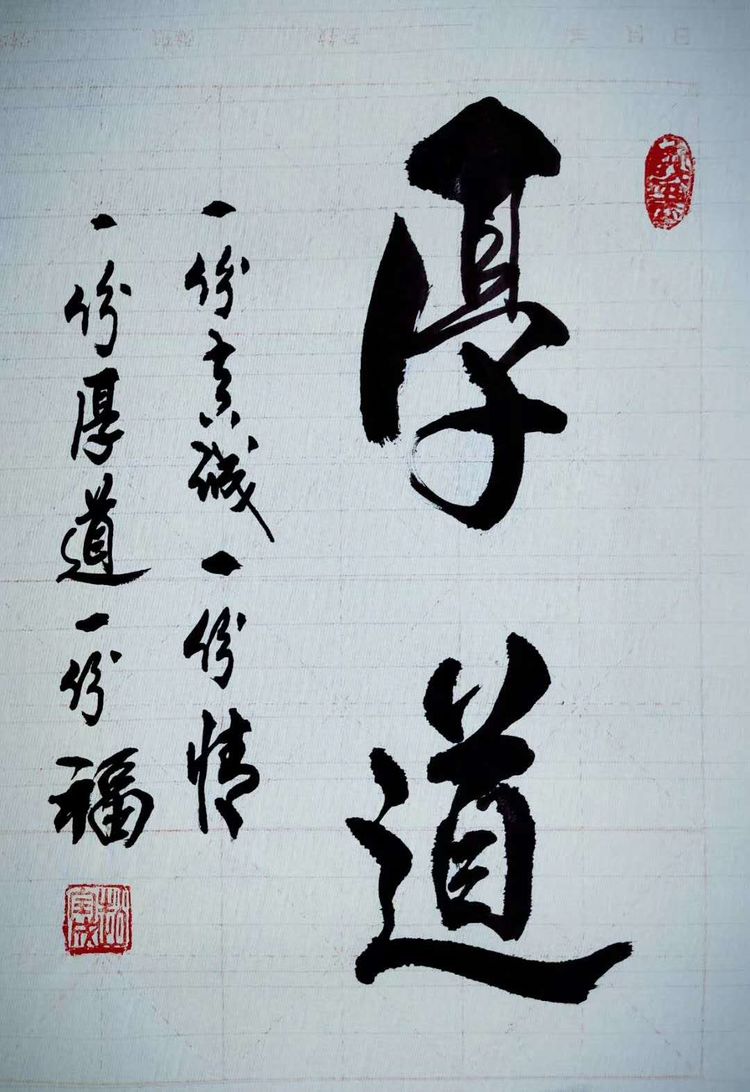 厚道
一份真诚一份情
一份厚道一份福